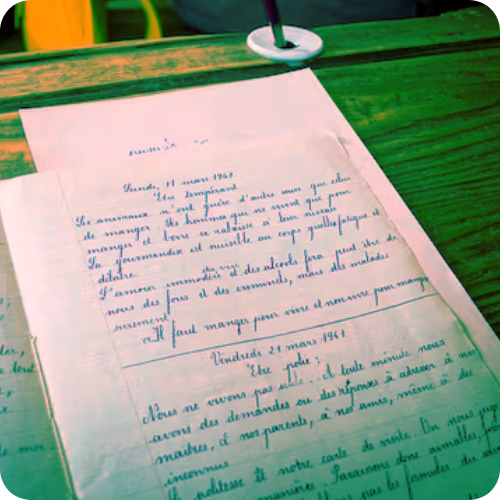 Lundi, 17 mars 1941.
Être tempérant.
Les animaux n'ont guère d'autre souci que celui
de manger. Les hommes qui ne vivent que pour
manger et boire se rabaisse à leur niveau
La gourmandise est nuisible au corps qu'elle fatigue et
délabre.
L'amour immodéré du vin et des alcools fera peut être de
nous des fous et des criminels, mais des malades
sûrement.
"Il faut manger pour vivre et non vivre pour manger
Vendredi 21 mars 1941
Être poli :
Nous ne vivons pas A toute minute nous
avons des demandes ou des réponses à adresser à nos
maîtres, à nos parents, à nos amis, même à des
inconnus
politesse notre carte de visite. On nous juge
manières. Paraissons donc aimables,
par les formules du